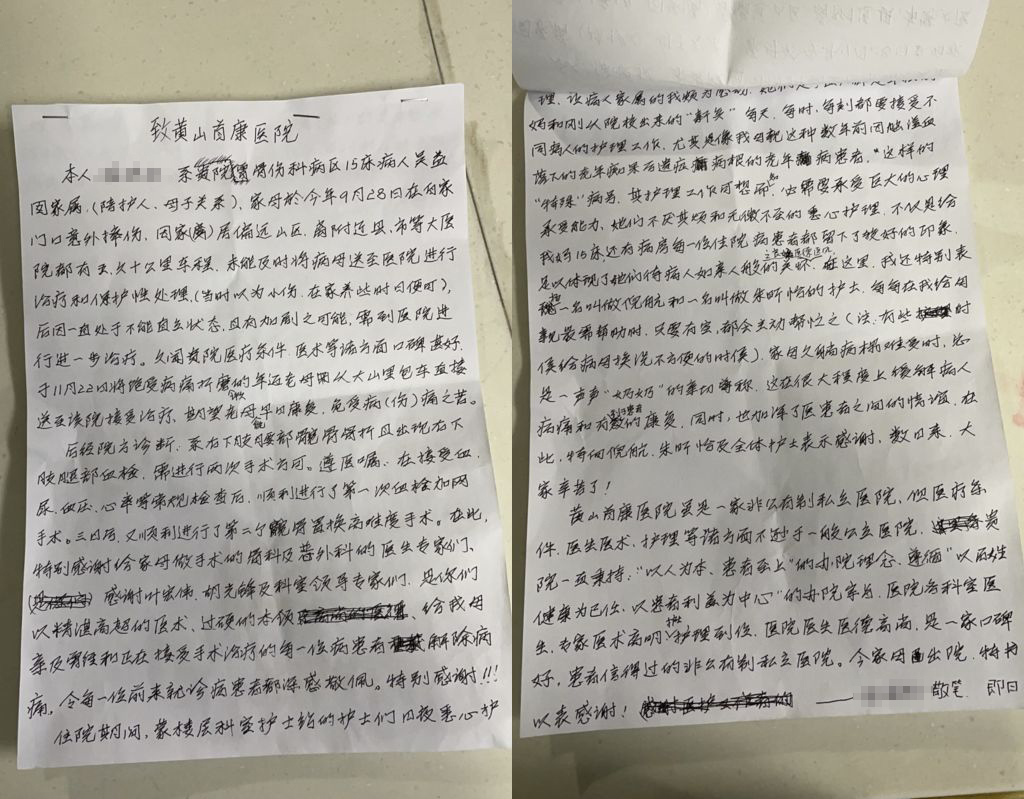 致黄山首康医院
本人 系黄院骨伤科病区15床病人吴益
回家属，(陪护人、母子关系)，家母於今年9月28日在自家
门口意外摔伤，因家(离)居偏远山区，离附近县、市等大医
院都有五、六十公里车程，未能及时将病母送至医院进行
治疗和保护性处理，(当时以为小伤，在家养些时日便可)，
后因一直处于不能直立状态，且有加剧之可能，需到医院进
行进一步治疗。久闻黄院医疗条件、医术等诸方面口碑甚好，
于11月22日将饱受病痛折磨的年迈老母从大山里包车直接
送至该院接受治疗，期望老母能早日康复，免受病(伤)痛之苦。
后经院方诊断，系右下肢腰部髋骨骨折且出现左下
肢腿部血栓，需进行两次手术方可。遵医嘱，在接受血、
尿、血压、心率等常规检查后，顺利进行了第一次血栓加网
手术。三日后，又顺利进行了第二个髋骨置换高难度手术。在此，
特别感谢给家母做手术的骨科及普外科的医生专家们、
感谢叶宏伟、胡光锋及科室领导专家们，是你们
以精湛高超的医术、过硬的本领 、给我母
亲及曾经和正在接受手术治疗的每一位病患者 解除病
痛，令每一位前来就诊病患者都深感敬佩。特别感谢!!!
住院期间，蒙楼层科室护士站的护士们日夜悉心护
理，让病人家属的我颇为感动，
妈和刚从院校出来的"新兵"每天、每时、每刻都要接受不
同病人的护理工作，尤其是像我母亲这种数年前因脑溢血
落下的老年病果而遗症病根的老年病患者，"这样的
"特殊"病号，其护理工作可想而知，也需要承受巨大的心理
承受能力，她们不厌其烦和无微不至的悉心护理，不仅是给
我妈15床还有病房每一位住院病患者都留下了较好的印象，
足以体现了她们待病人如亲人般的关怀。在这里，我还特别表
一名叫做阮航和一名叫做朱昕怡的护士，每每在我给母
亲最需帮助时，只要有空，都会主动帮忙之(注：有些 时
候给病母换洗不方便的时候)，家母久躺病榻难受时，总
是一声声"奶奶"的亲切尊称，这在很大程度上缓解病人
病痛和有效的康复，同时，也加深了医患者之间的情谊，在
此，特向阮航、朱昕怡及全体护士表示感谢，数日来，大
家辛苦了!
黄山首康医院虽是一家非公有制私立医院，但医疗条
件、医生医术、护理等诸方面不逊于一般公立医院， 贵
院一直秉持："以人为本、患者至上"的办院理念、遵循"以百姓
健康为己任，以患者利益为中心"的办院宗旨。医院各科室医
生、专家医术高明、护理到位、医院医生医德高尚，是一家口碑
好，患者信得过的非公有制私立医院。今家母出院，特书
以表感谢! —— 敬笔 即日